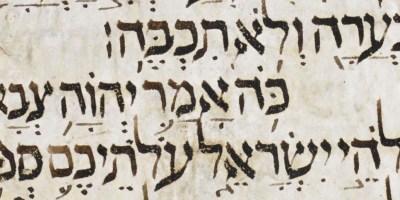 בָעֲרָה וְלֹא תִכְבֶּה׃
כֹּה אָמַר יְהוָה צְבָא
לֹהֵי יִשְׂרָאֵל עֹלתֵיכֶם סְפ